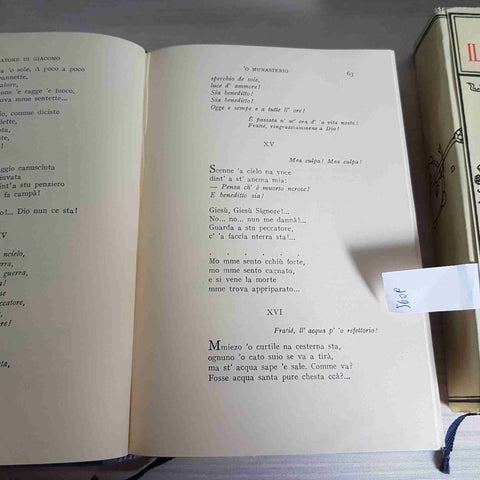 ATORE DI GIACOMO
a 'o sole, A poco a poco
annette,
alore,
'ne 'e ragge 'e fuoco,
ova mme sentette...
omo, comme diciste
dette,
sta,
ggio camuscluta
iuvata
dint'a stu penziero
fa campà!
o!... Dio nun ce sta!
IV
ncielo,
erra,
guerra,
ise
ccatore,
e!
re!
sta,
'O MUNASTERIO
63
specchio de sole,
luce d' ammore!
Sia beneditto!
Sia beneditto!
Ogge e sempe e a tutte ll' ore!
È passata n' at' ora d' 'a vita nosta!
Fratié, ringrazziammene a Dio!
XV
Mea culpa! Mea culpa!
Scenne 'a cielo na voce
dint' a st' anema mia:
— Penza ch' è muorto ncroce!
E beneditto sia!
Giesù, Giesù Signore!...
No... no... nun me dannà!...
Guarda a stu peccatore,
c' 'a faccia nterra sta!...
. . . . . .
Mo mme sento cchiù forte,
mo mme sento cagnato,
e si vene la morte
mme trova appriparato...
XVI
Fratié, ll' acqua p' 'o refettorio!
Mmiezo 'o curtile na cesterna sta,
ognuno 'o cato suio se va a tirà,
ma st' acqua sape 'e sale. Comme va?
Fosse acqua santa pure chesta ccà?...
IL